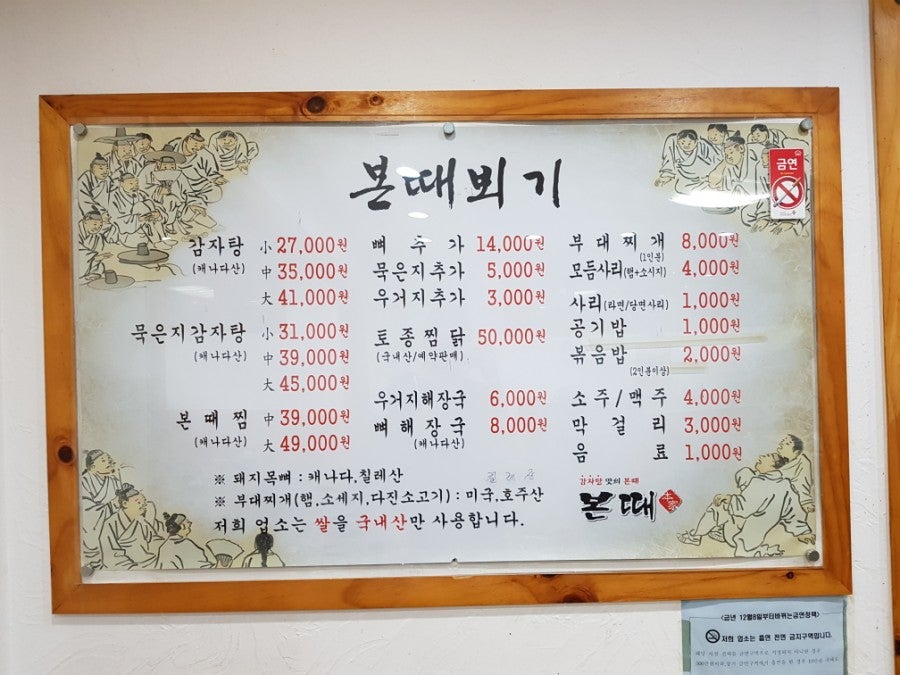 본때뵈기
금연
감자탕 小 27,000원
(캐나다산) 中 35,000원
大 41,000원
묵은지감자탕 小 31,000원
(캐나다산) 中 39,000원
大 45,000원
본때찜 中 39,000원
(캐나다산) 大 49,000원
뼈추가 14,000원
묵은지추가 5,000원
우거지추가 3,000원
토종찜닭 50,000원
(국내산/예약판매)
우거지해장국 6,000원
뼈해장국 8,000원
(캐나다산)
부대찌개 8,000원
(1인분)
모듬사리(햄+소시지) 4,000원
사리(라면/당면사리) 1,000원
공기밥 1,000원
볶음밥 2,000원
(2인분이상)
소주/맥주 4,000원
막걸리 3,000원
음료 1,000원
※ 돼지목뼈 : 캐나다.칠레산
※ 부대찌개(햄,소세지,다진소고기) : 미국,호주산
저희 업소는 쌀을 국내산만 사용합니다.
감자탕 맛의 본때
본때
<금년 12월8일부터바뀌는금연정책>
저희 업소는 흡연 전면 금지구역입니다.